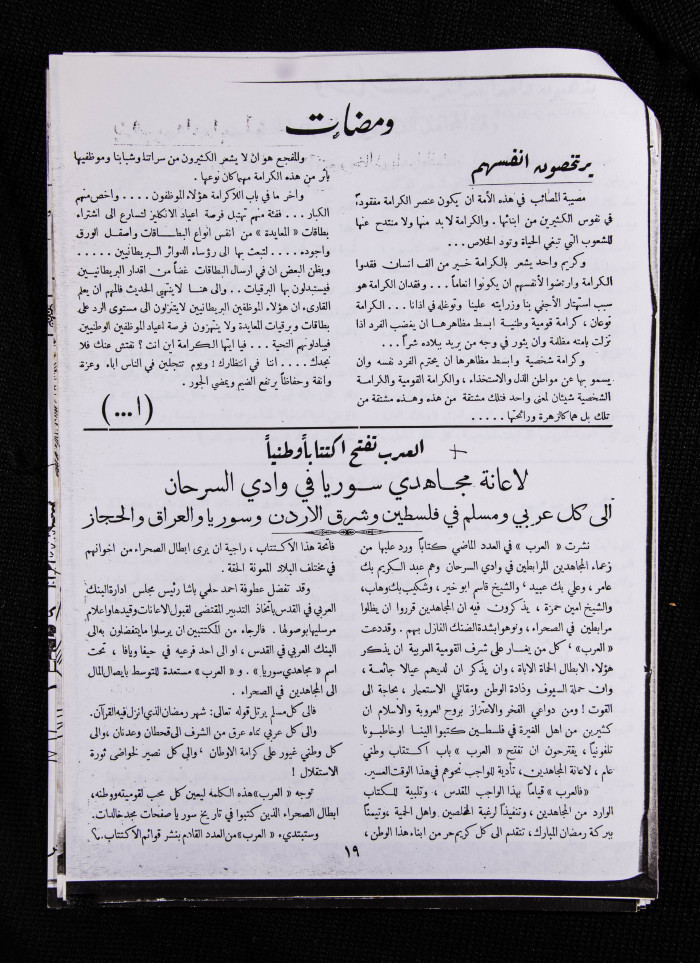 ومضات
يرتخصون انفسهم
مصيبة المصائب في هذه الأمة ان يكون عنصر الكرامة مفقوداً
في نفوس الكثيرين من ابنائها . والكرامة لابد منها ولا منتدح عنها
للشعوب التي تبغي الحياة وتود الخلاص ...
وكريم واحد يشعر بالكرامة خير من الف انسان فقدوا
الكرامة وارتضوا لأنفسهم ان يكونوا انعاماً ... وفقدان الكرامة هو
سبب استهتار الأجنبي بنا وزرايته علينا وتوغله في اذانا ... الكرامة
نوعان ، كرامة قومية وطنية ابسط مظاهرها ان يغضب الفرد اذا
نزلت بامته مظلمة وان يثور في وجه من يريد ببلاده شراً ...
وكرامة شخصية وابسط مظاهرها ان يحترم الفرد نفسه وان
يسمو بها عن مواطن الذل والاستخذاء ، والكرامة القومية والكرامة
الشخصية شيئان لمعنى واحد فتلك مشتقة من هذه وهذه مشتقة من
تلك بل هما كالزهرة ورائحتها .....
وللفجع هو ان لا يشعر الكثيرون من سراتنا وشبابنا وموظفيها
بأثر من هذه الكرامة مهما كان نوعها .
واخر ما في باب اللاكرامة هؤلاء الموظفون .... واخص منهم
الكبار ... ففئة منهم تهتبل فرصة اعياد الانكليز لتسارع الى اشتراء
بطاقات « المعايدة » من انفس انواع البطاقات واصقل الورق
واجوده .... لتبعث بها الى رؤساء الدوائر البريطانيين .....
ويظن البعض ان في ارسال البطاقات غضاً من اقدار البريطانيين
فيستبدلون بها البرقيات .. والى هنا لا ينتهي الحديث فالمهم ان يعلم
القارىء ان هؤلاء الموظفين البريطانيين لا يتنزلون الى مستوى الرد على
بطاقات وبرقيات المعايدة ولا ينتهزون فرصة اعياد الموظفين الوطنيين
فيبادلونهم التحية ... فيا ايتها الكرامة اين انت ؟ نفتش عنك فلا
نجدك .... اننا في انتظارك ! ويوم تتجلين في الناس اباء وعزة
وانفة وحفاظاً يرتفع الضيم ويمضي الجور .
( ا ... )
العرب تفتح اكتتاباً وطنياً
لاعانة مجاهدي سوريا في وادي السرحان
الى كل عربي ومسلم في فلسطين وشرق الاردن وسوريا والعراق والحجاز
نشرت « العرب » في العدد الماضي كتاباً ورد عليها من
زعماء المجاهدين المرابطين في وادي السرحان وهم عبد الكريم بك
عامر ، وعلي بك عبيد ، والشيخ قاسم ابو خير ، وشكيب بك وهاب ،
والشيخ امين حمزة ، يذكرون فيه ان المجاهدين قرروا ان يظلوا
مرابطين في الصحراء ، ونوهوا بشدة الضنك النازل بهم . وقد دعت
« العرب » ، كل من يغار على شرف القومية العربية ان يذكر
هؤلاء الابطال الحماة الاباة ، وان يذكر ان لديهم عيالا جائعة ،
وان حملة السيوف وذادة الوطن ومقاتلي الاستعمار ، بحاجة الى
القوت ! ومن دواعي الفخر والاعتزاز بروح العروبة والاسلام ان
كثيرين من اهل الغيرة في فلسطين كتبوا الينا او خاطبونا
تلفونياً ، يقترحون ان تفتح « العرب » باب اكتتاب وطني
عام ، لاعانة المجاهدين ، تأدية للواجب نحوهم في هذا الوقت العسير.
« فالعرب » قياماً بهذا الواجب المقدس ، وتلبية للكتاب
الوارد من المجاهدين ، وتنفيذاً لرغبة المخلصين واهل الحمية ، وتيمناً
ببركة رمضان المبارك ، تتقدم الى كل كريم حر من ابناء هذا الوطن ،
فاتحة هذا الاكتتاب ، راجية ان يرى ابطال الصحراء من اخوانهم
في مختلف البلاد المعونة الحقة .
وقد تفضل عطوفة احمد حلمي باشا رئيس مجلس ادارة البنك
العربي في القدس باتخاذ التدبير المقتضى لقبول الاعانات وقيدها واعلام
مرسليها بوصولها . فالرجاء من المكتتبين ان يرسلوا ما يتفضلون به الى
البنك العربي في القدس ، او الى احد فرعيه في حيفا ويافا ، تحت
اسم « مجاهدي سوريا » . و « العرب » مستعدة للتوسط بايصال المال
الى المجاهدين في الصحراء .
فالى كل مسلم يرتل قوله تعالى : شهر رمضان الذي انزل فيه القرآن.
والى كل عربي نماه عرق من الشرف الى قحطان وعدنان ، والى
كل وطني غيور على كرامة الاوطان ، والى كل نصير لخواضي ثورة
الاستقلال !
توجه « العرب » هذه الكلمة ليعين كل محب لقوميته ووطنه ،
ابطال الصحراء الذين كتبوا في تاريخ سوريا صفحات مجد خالدات .
وستبتدىء « العرب » من العدد القادم بنشر قوائم الاكتتاب .
١٩